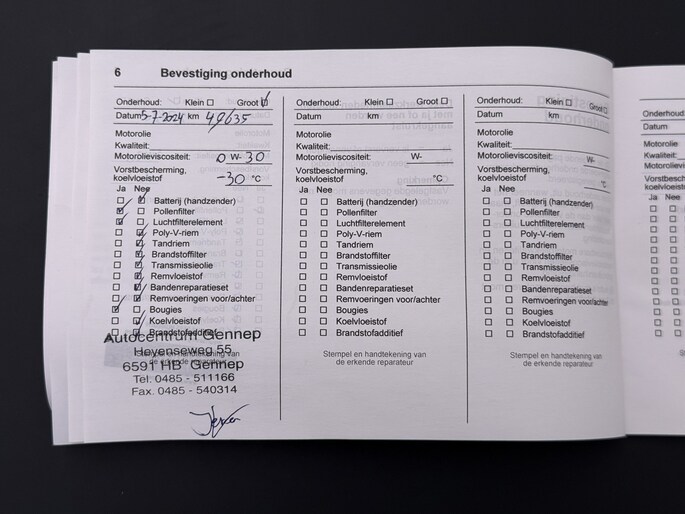 6 Bevestiging onderhoud
Onderhoud: Klein Groot
Datum 5-7-2024 km 49635
Motorolie
Kwaliteit:
Motorolieviscositeit: 0 W- 30
Vorstbescherming,
koelvloeistof -30 °C
Ja Nee
Batterij (handzender)
Pollenfilter
Luchtfilterelement
Poly-V-riem
Tandriem
Brandstoffilter
Transmissieolie
Remvloeistof
Bandenreparatieset
Remvoeringen voor/achter
Bougies
Koelvloeistof
Brandstofadditief
Autocentrum Gennep
Heyenseweg 55
6591 HB Gennep
Tel. 0485 - 511166
Fax. 0485 - 540314
Stempel en handtekening van
de erkende reparateur
Onderhoud: Klein Groot
Datum km
Motorolie
Kwaliteit:
Motorolieviscositeit: W-
Vorstbescherming,
koelvloeistof °C
Ja Nee
Batterij (handzender)
Pollenfilter
Luchtfilterelement
Poly-V-riem
Tandriem
Brandstoffilter
Transmissieolie
Remvloeistof
Bandenreparatieset
Remvoeringen voor/achter
Bougies
Koelvloeistof
Brandstofadditief
Stempel en handtekening van
de erkende reparateur
Onderhoud: Klein Groot
Datum km
Motorolie
Kwaliteit:
Motorolieviscositeit: W-
Vorstbescherming,
koelvloeistof °C
Ja Nee
Batterij (handzender)
Pollenfilter
Luchtfilterelement
Poly-V-riem
Tandriem
Brandstoffilter
Transmissieolie
Remvloeistof
Bandenreparatieset
Remvoeringen voor/achter
Bougies
Koelvloeistof
Brandstofadditief
Stempel en handtekening van
de erkende reparateur
Onderhoud
Datum
Motorolie
Kwaliteit:
Ja Nee